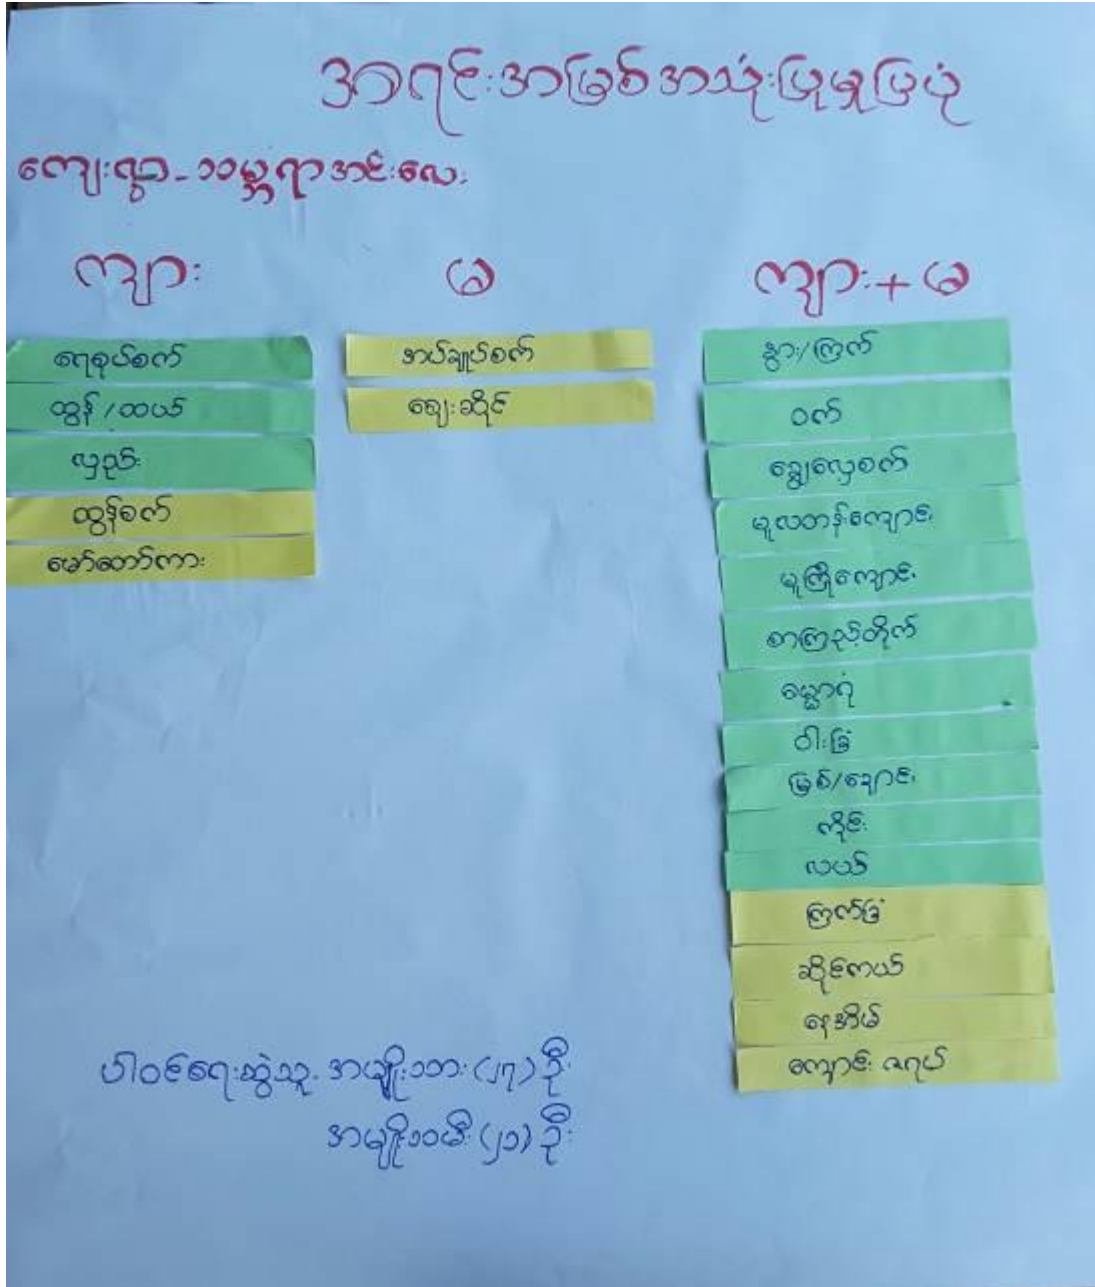 အရင်းအမြစ်အသုံးပြုမှုပြပုံ
ကျေးရွာ-သမ္ဘရာအင်းလေး
ကျား
မ
ကျား+မ
ရေစုပ်စက်
ထွန်/ထယ်
လှည်း
ထွန်စက်
မော်တော်ကား
အပ်ချုပ်စက်
ဈေးဆိုင်
နွား/ကြက်
ဝက်
ခြွေလှေ့စက်
မူလတန်းကျောင်း
မူကြိုကျောင်း
စာကြည့်တိုက်
ဓမ္မာရုံ
ဝါးခြံ
မြစ်/ချောင်း
ကိုင်း
လယ်
ကြက်ခြံ
ဆိုင်ကယ်
နေအိမ်
ကျောင်း ဇရပ်
ပါဝင်ရေးဆွဲသူ- အမျိုးသား (၂၇) ဦး
အမျိုးသမီး (၂၁) ဦး